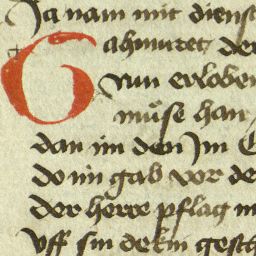 Ja nam mit dienst
Gahmuret der
Nun erlobe
müse han
dan im den Jm
do im gab vor de
der herre pflag
Vff sin dekin gesch